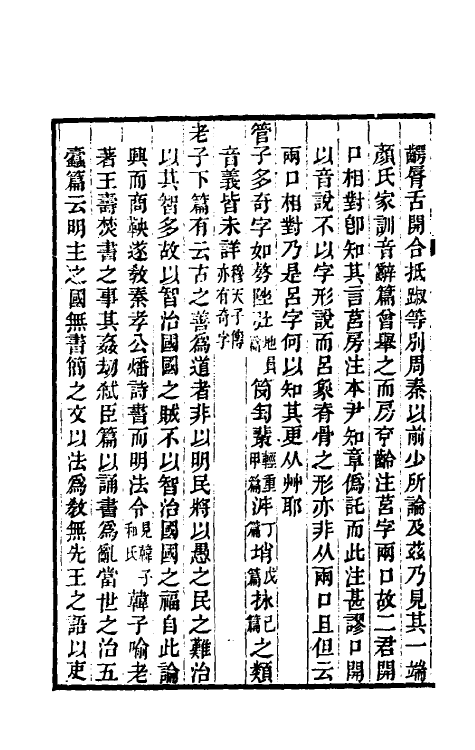 齶脣舌開合抵踧等別周秦以前少所論及茲乃見其一端
顏氏家訓音辭篇曾舉之而房玄齡注莒字兩口故二君開
口相對卽知其言莒房注本尹知章僞託而此注甚謬口開
以音說不以字形說而呂象脊骨之形亦非从兩口且但云
兩口相對乃是呂字何以知其更从艸耶
管子多奇字如 地員篇 輕重甲篇 丁篇 戊篇 己篇之類
音義皆未詳穆天子傳亦有奇字
老子下篇有云古之善爲道者非以明民將以愚之民之難治
以其智多故以智治國國之賊不以智治國國之福自此論
興而商鞅遂敎秦孝公燔詩書而明法令見韓子和氏韓子喻老
著王壽焚書之事其姦劫弑臣篇以誦書爲亂當世之治五
蠹篇云明主之國無書簡之文以法爲敎無先王之語以吏